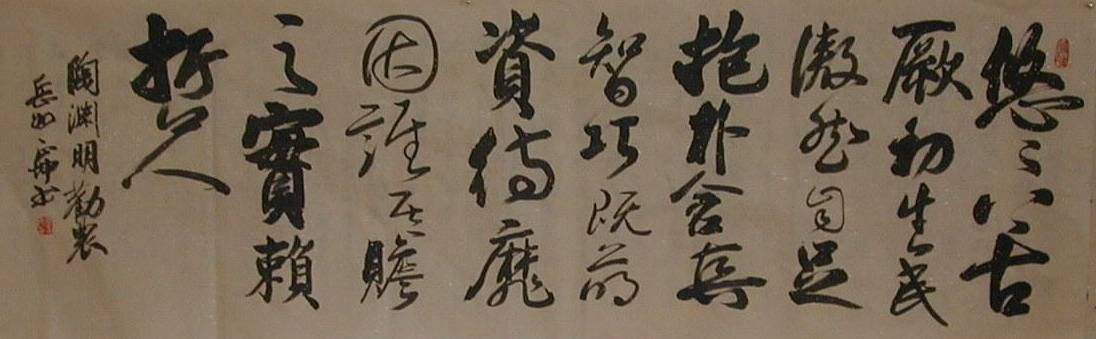 悠〻上古
厥初生民
傲然自足
抱朴含真
智巧既萌
資待靡
因誰其贍
之實賴
哲人
陶淵明勸農